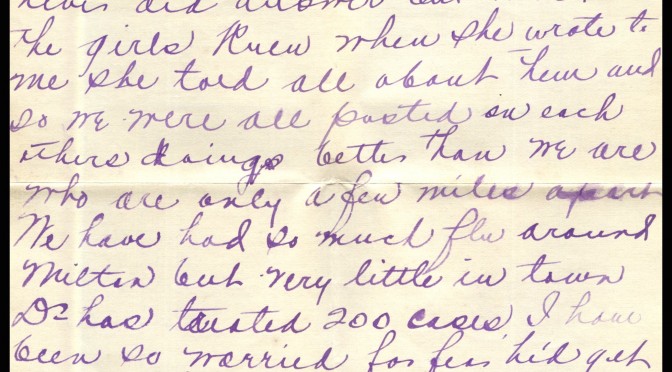 never did answer but
the girls knew when she wrote to
me she told all about them and
so we were all posted on each
others doings better than we are
who are only a few miles apart
We have had so much flu around
Milton but very little in town
Dr has treated 200 cases, I have
been so worried for fear he'd get